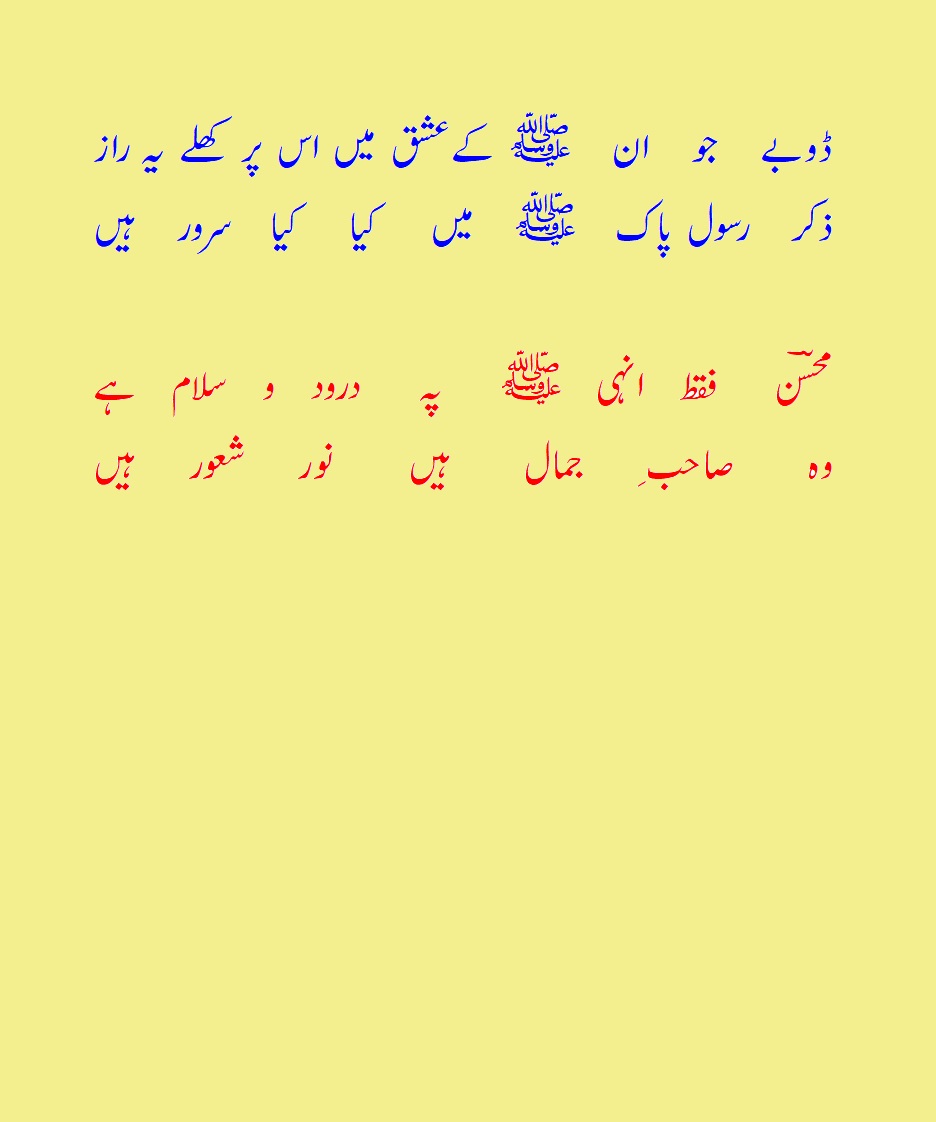 ڈوبے جو ان ﷺ کے عشق میں اس پر کھلے یہ راز
ذکر رسول پاک ﷺ میں کیا کیا سرور ہیں
محسنؔ فقط انہی ﷺ پہ درود و سلام ہے
وہ صاحبِ جمال ہیں نور شعور ہیں